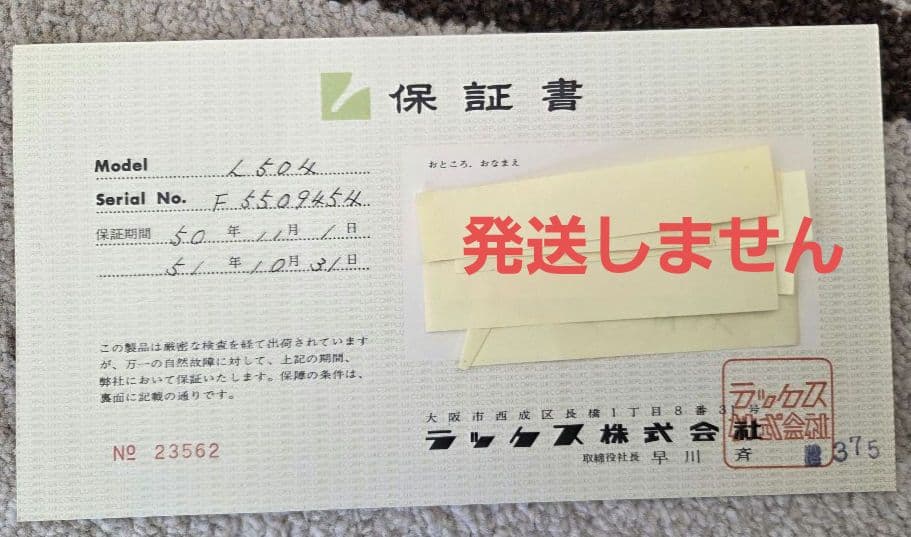 保証書
Model L504
Serial No. F 5509454
保証期間 50年11月1日
51年10月31日
おところ、おなまえ
発送しません
この製品は厳密な検査を経て出荷されています
が、万一の自然故障に対して、上記の期間、
弊社において保証いたします。保障の条件は、
裏面に記載の通りです。
№ 23562
大阪市西成区長橋1丁目8番31号
ラックス株式会社
取締役社長 早川 斉
ラックス
株式会社
375